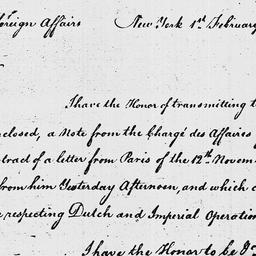 Foreign Affairs New York 1st February
I have the Honor of transmitting t
closed, a Note from the Chargé des Affaires
tract of a letter from Paris of the 12th Novem
from him Yesterday Afternoon, and which c
respecting Dutch and Imperial Operation
I have the Honor to be